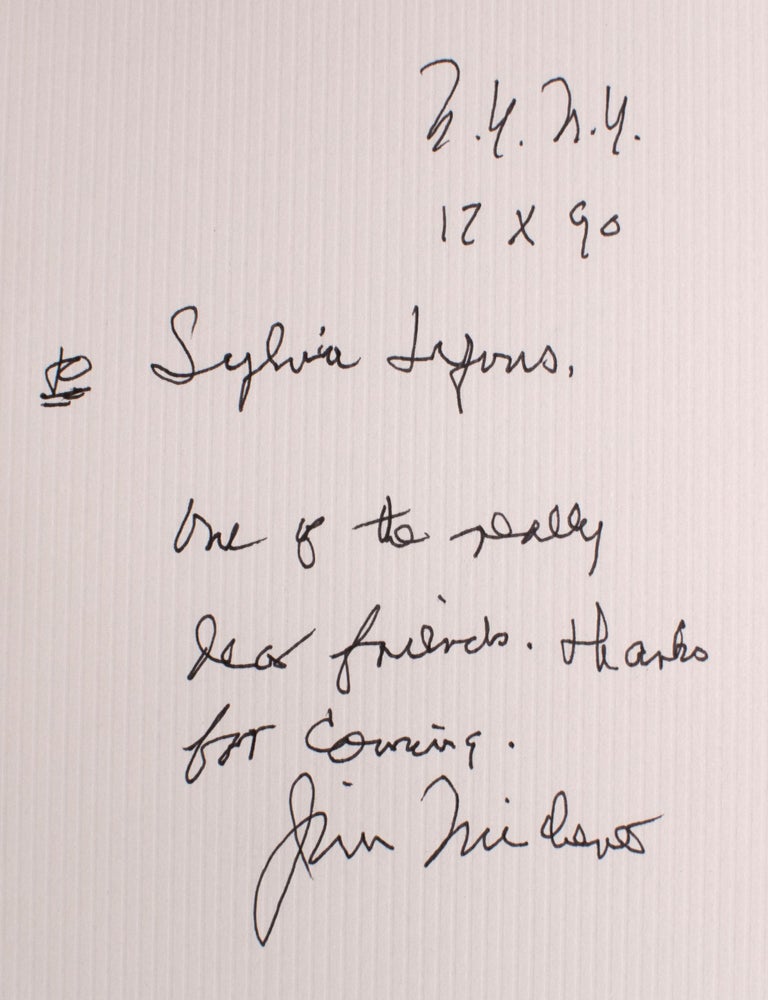 N.Y. N.Y.
12 X 90
to Sylvia Lyons,
One of the really
dear friends. thanks
for coming.
Jim Michener